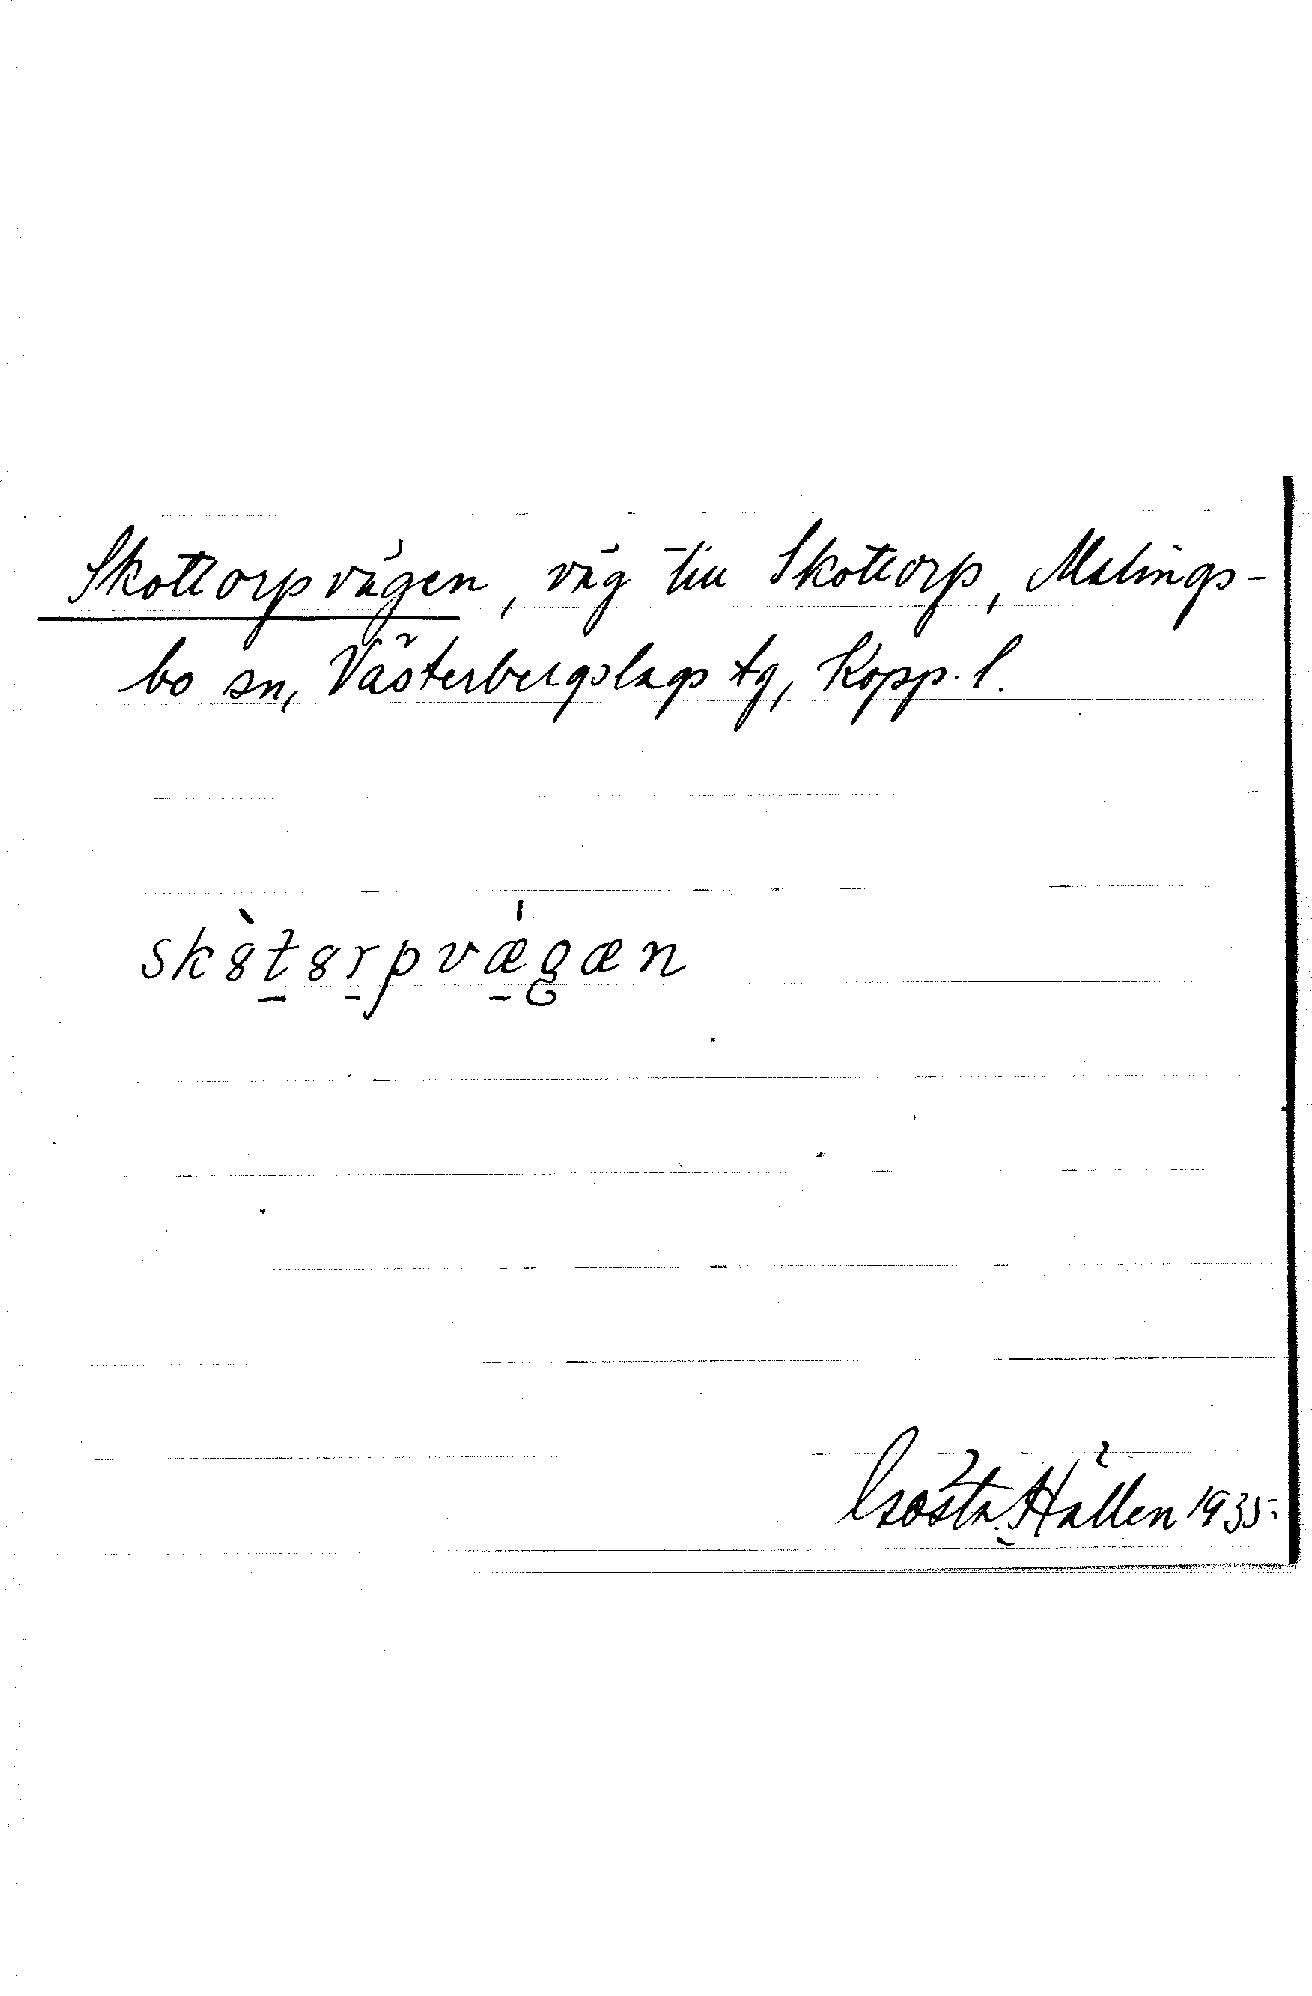 Skottorpvägen, väg till Skottorp, Malings-
bo sn, Västerbergslags tg, Kopp. l.
sk8̀t8rpvǽgæn
Gösta Hällen 1935.